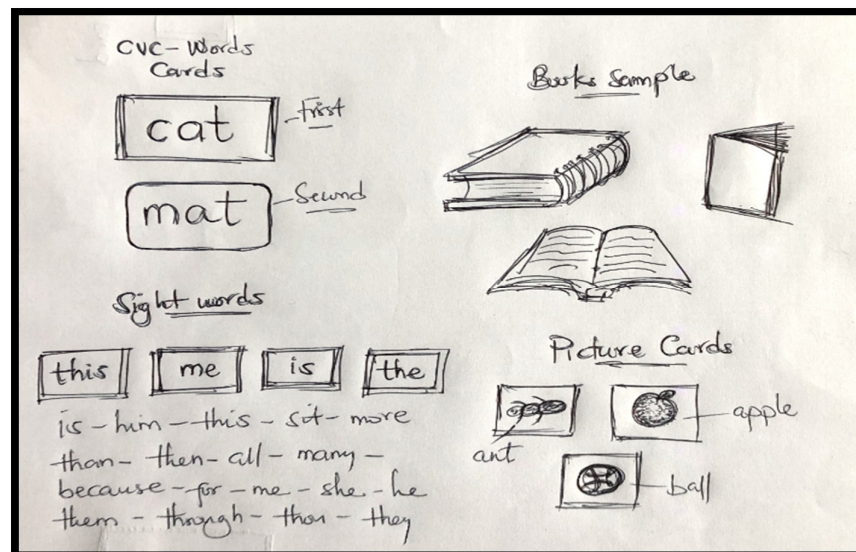 CVC-Words
Cards
cat
Frist
mat
Second
Sight words
this me is the
is - him - this - sit - more
than - then - all - many -
because - for - me - she - he
them - through - than - they
Books Sample
Picture Cards
ant
apple
ball